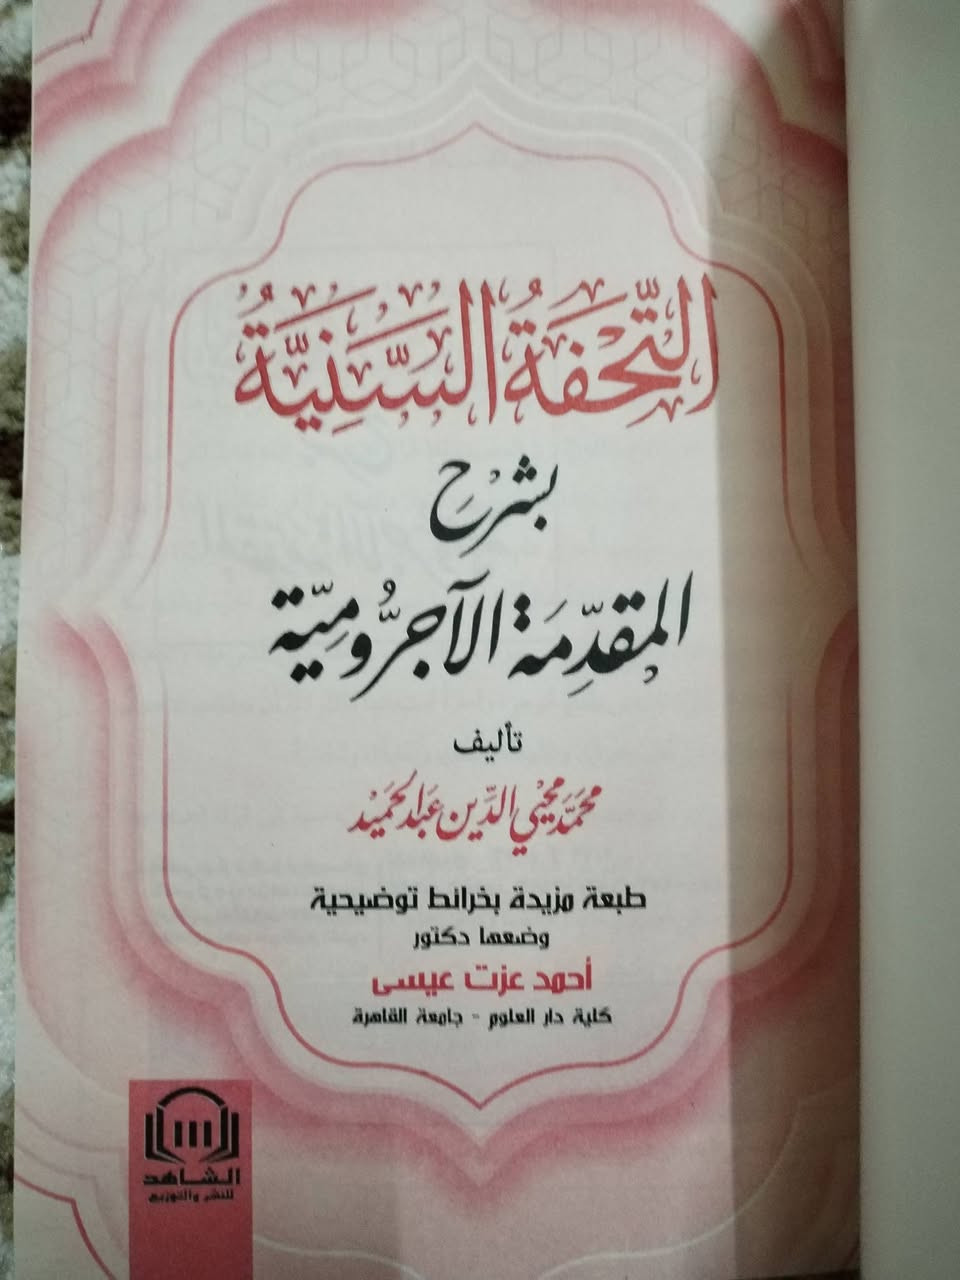 التُّحْفَةُ السَّنِيَّةُ
بشرح
المقدِّمَة الآجرُّوميَّة
تأليف
محمَّد محيي الدِّين عبد الحَميْد
طبعة مزيدة بخرائط توضيحية
وضعها دكتور
أحمد عزت عيسى
كلية دار العلوم - جامعة القاهرة
الشاهد
للنشر والتوزيع